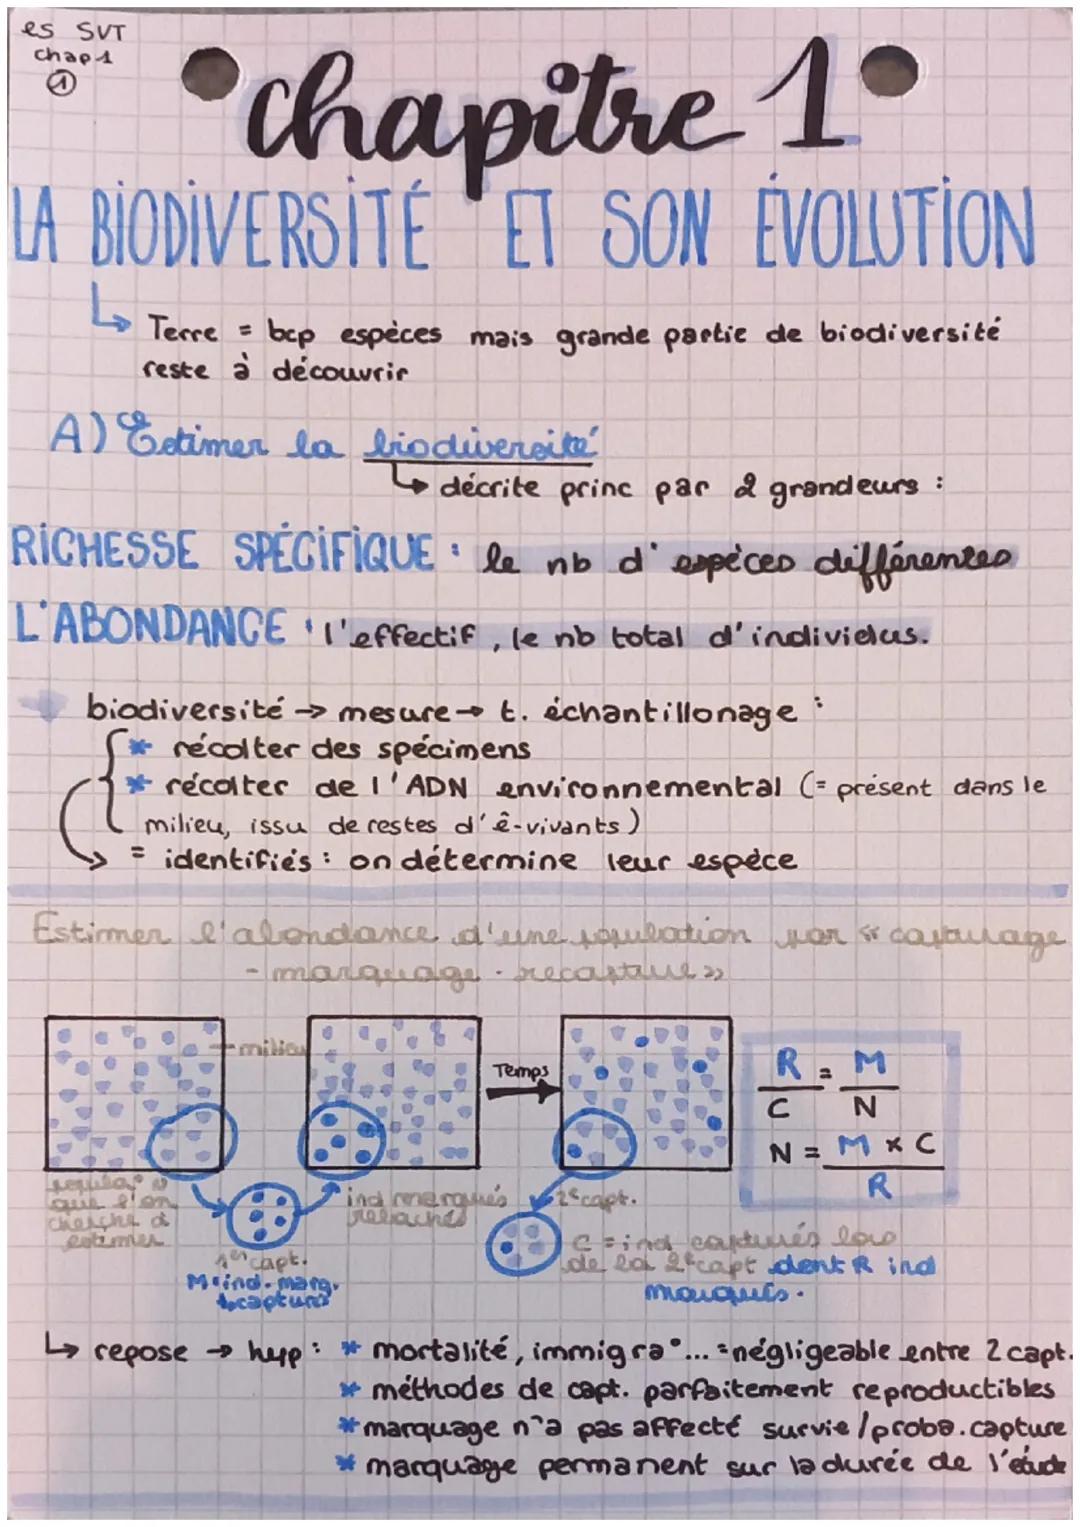 es SVT
chap 1
①
chapitre 1
LA BIODIVERSITÉ ET SON ÉVOLUTION
↳ Terre = bcp espèces mais grande partie de biodiversité
reste à découvrir
A) Estimer la biodiversité
↳ décrite princ par 2 grandeurs :
RICHESSE SPÉCIFIQUE : le nb d'espèces différentes
L'ABONDANCE : l'effectif, le nb total d'individus.
biodiversité → mesure → t. échantillonage :
* récolter des spécimens
* récolter de l'ADN environnemental (= présent dans le
milieu, issu de restes d'ê-vivants)
= identifiés : on détermine leur espèce
Estimer l'abondance d'une population par « capturage
- marquage - recapture »
milieu
Temps
R/C = M/N
N = M x C / R
popula° N
que l'on
cherche à
estimer
1er capt.
M = ind. marq.
ind marqués
relachés
2e capt.
C = ind capturés lors
de la 2e capt dont R ind
marqués.
↳ repose → hyp : * mortalité, immigra°... = négligeable entre 2 capt.
* méthodes de capt. parfaitement reproductibles
* marquage n'a pas affecté survie / proba. capture
* marquage permanent sur la durée de l'étude